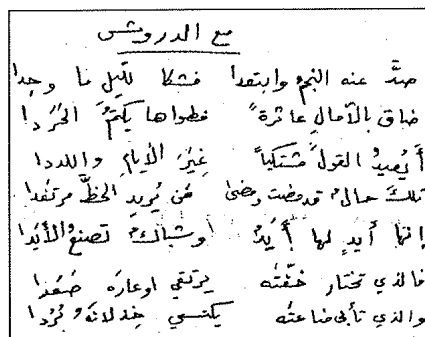 مع الدرويش
صدَّ عنه النجمُ وابتعدا فشكا لليلِ ما وجدا
ضاق بالآمالِ عاثرةً فطواها يكتمُ الحَرَدا
أَيُعيدُ القولَ مشتكياً غِيَرَ الأيامِ واللددا
تلكَ حالٌ قد مضت ومضى مَن يُريدِ الحظَّ مرتفدا
إنها أيدٍ لها أَيَدٌ وشباكٌ تصنعُ الأَيَدا
فالذي تختار خفّته يرتقي أوعارَه صُعُدا
والذي تأبى ضاعته يكتسي خذلانَه بُرُدا